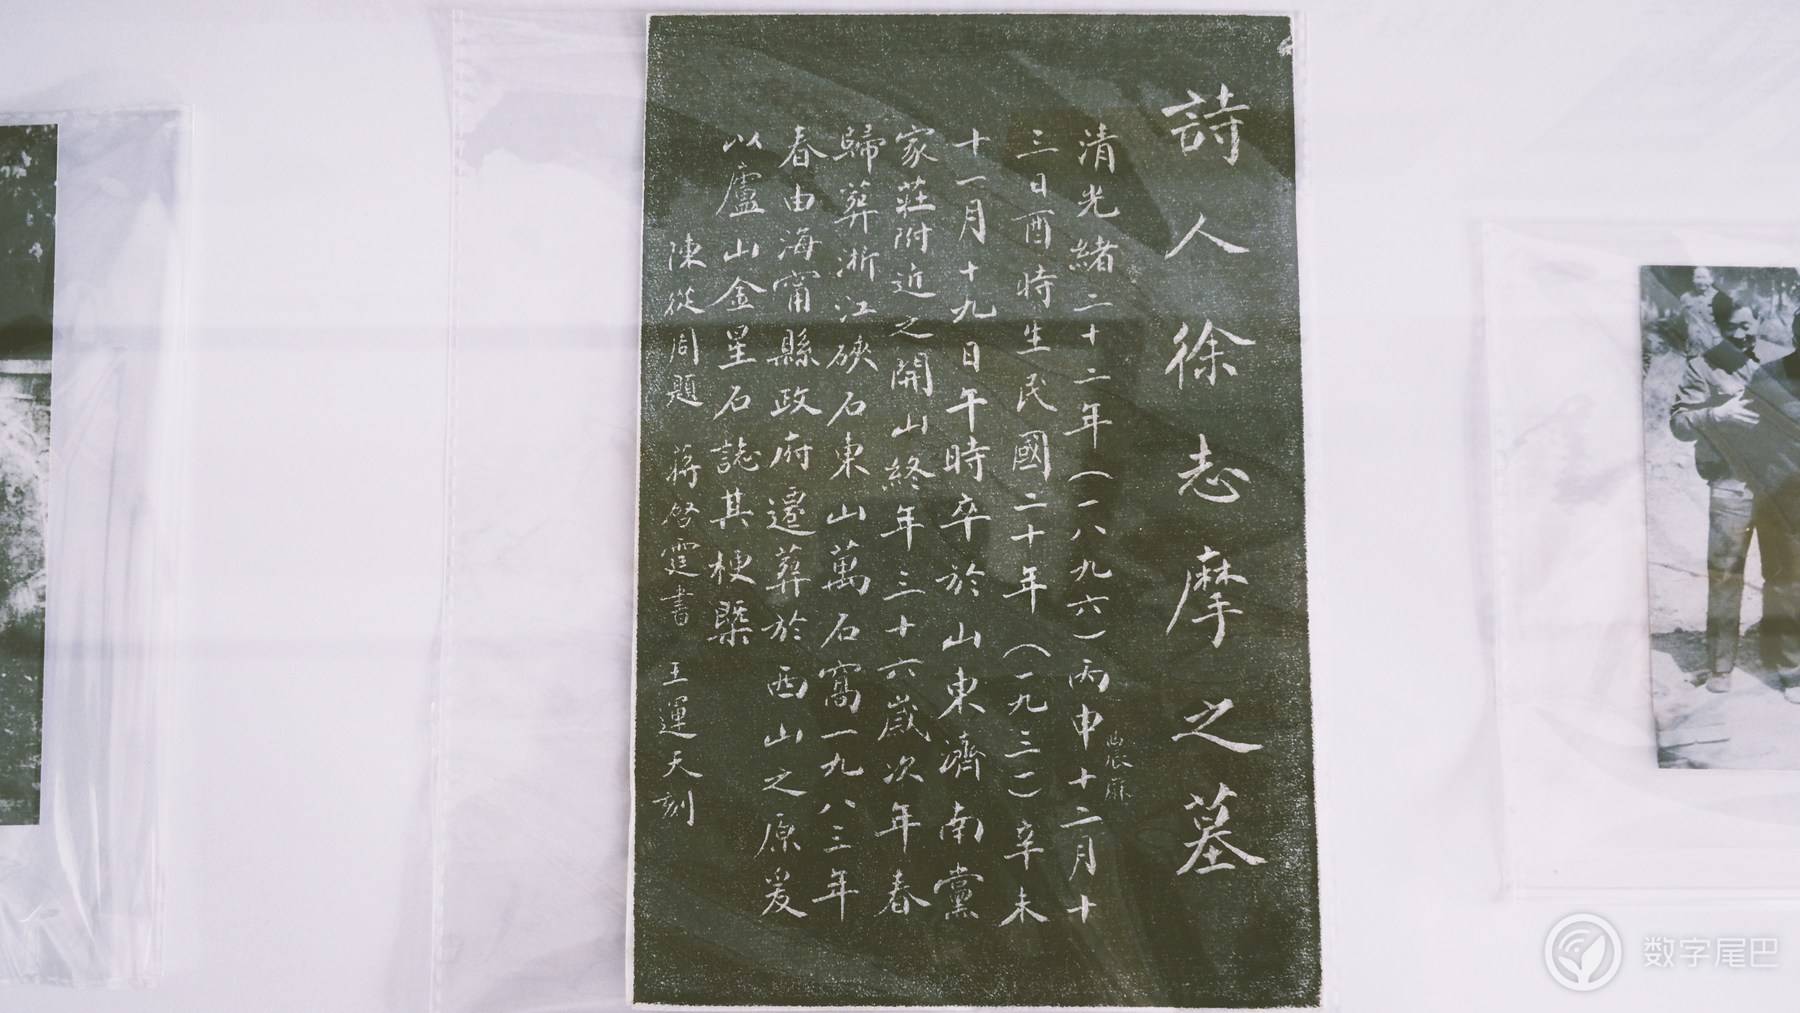 詩人徐志摩之墓
清光緒二十二年（一八九六）丙申十二月十
三日酉時生民國二十年（一九三一）辛未
十一月十九日午時卒於山東濟南黨
家莊附近之開山終年三十六歲次年春
歸葬浙江硤石東山萬石窩一九八三年
春由海甯縣政府遷葬於西山之原爰
以廬山金星石誌其梗槩
陳從周題 蔣啓霆書 王運天刻
数字尾巴